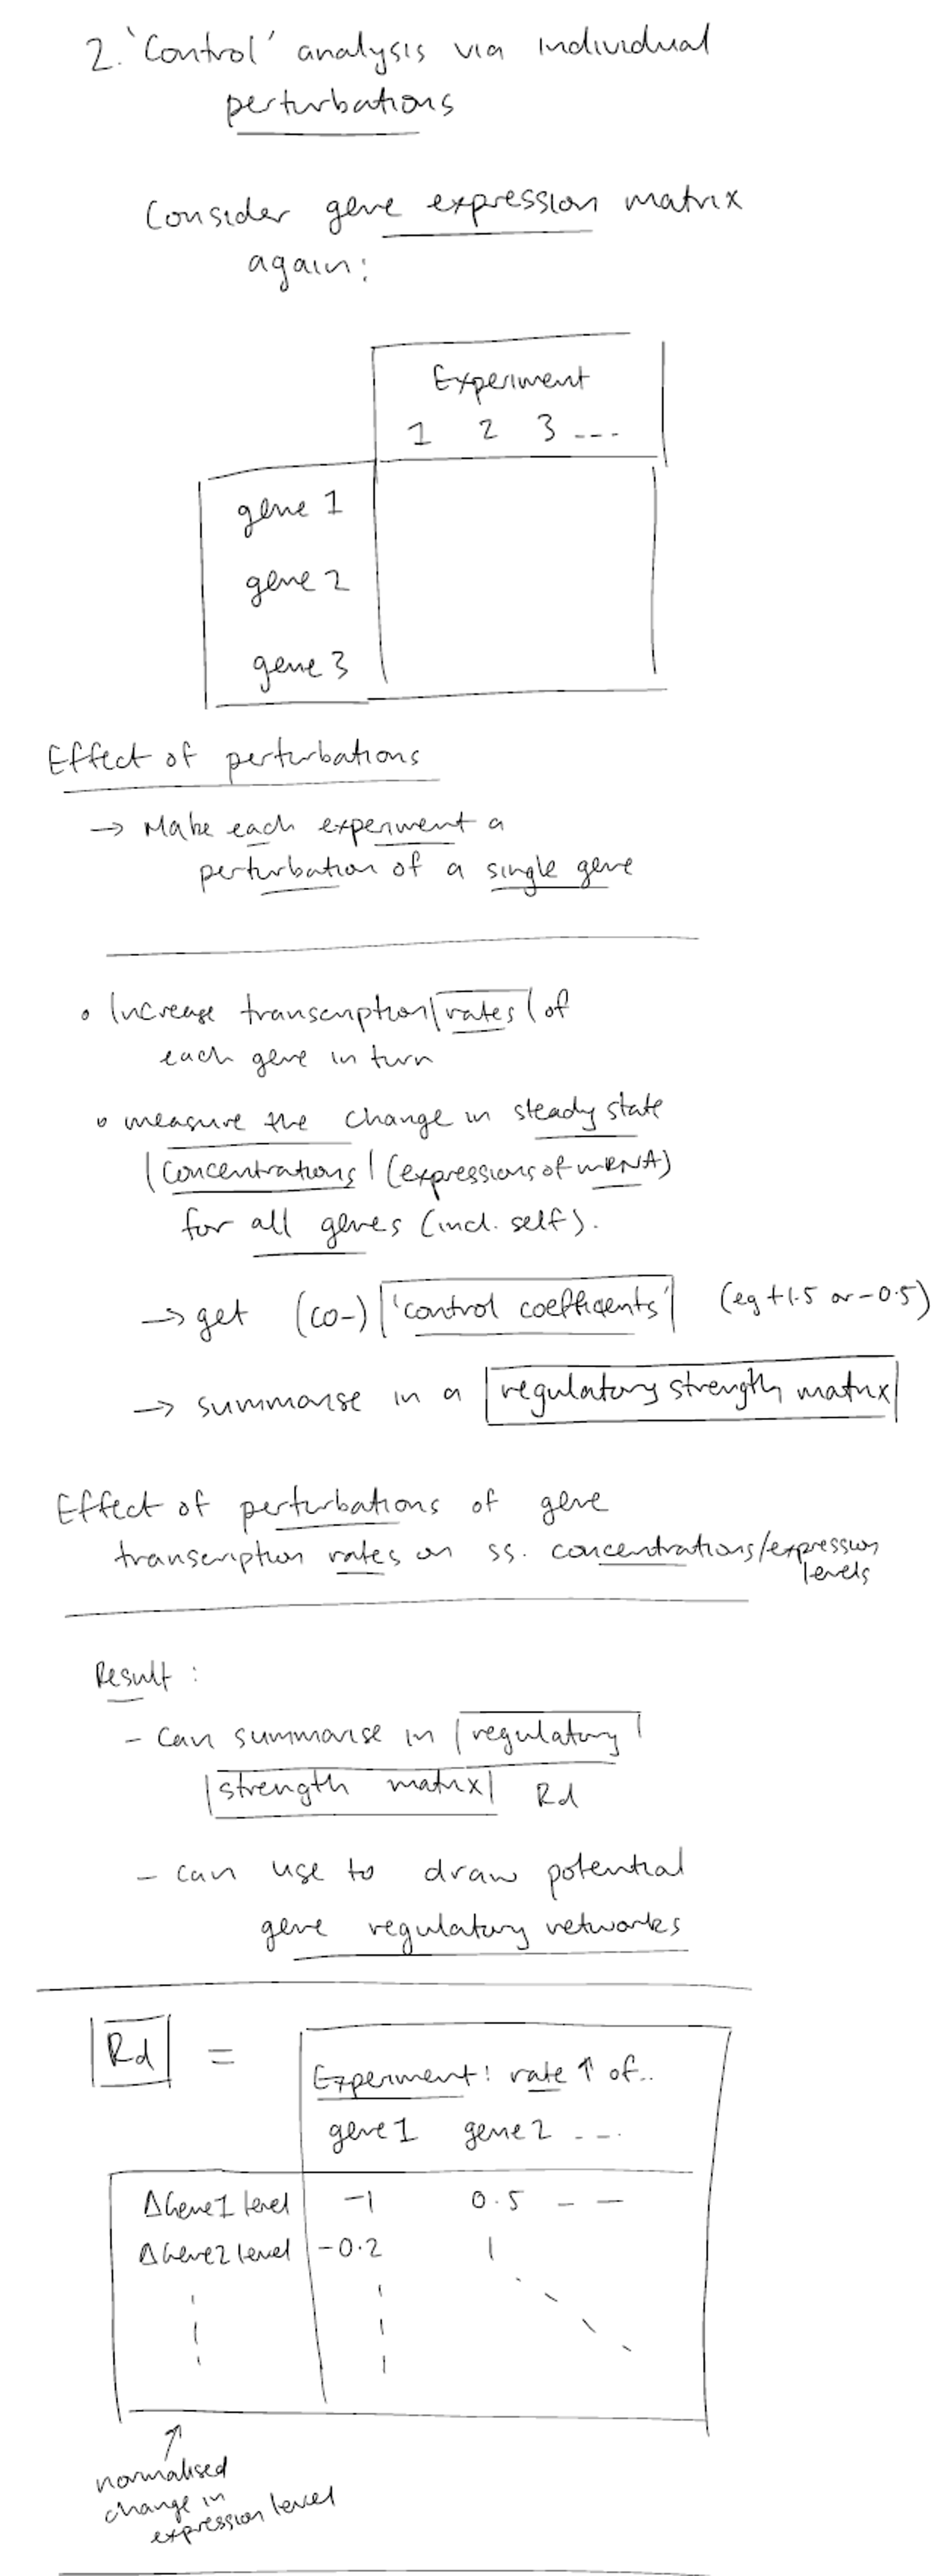 2. 'Control' analysis via individual
perturbations
Consider gene expression matrix
again:
Experiment
1 2 3 ---
gene 1
gene 2
gene 3
Effect of perturbations
→ Make each experiment a
perturbation of a single gene
• Increase transcription rates of
each gene in turn
• measure the change in steady state
concentrations (expressions of mRNA)
for all genes (incl. self).
→ get (co-) 'control coefficients' (eg +1.5 or -0.5)
→ summarise in a regulatory strength matrix
Effect of perturbations of gene
transcription rates on ss. concentrations/expression
levels
Result:
- can summarise in regulatory
strength matrix Rd
- can use to draw potential
gene regulatory networks
Rd =
Experiment: rate ↑ of..
gene 1 gene 2 ---
ΔGene1 level -1 0.5 - -
ΔGene2 level -0.2 1
normalised
change in
expression level